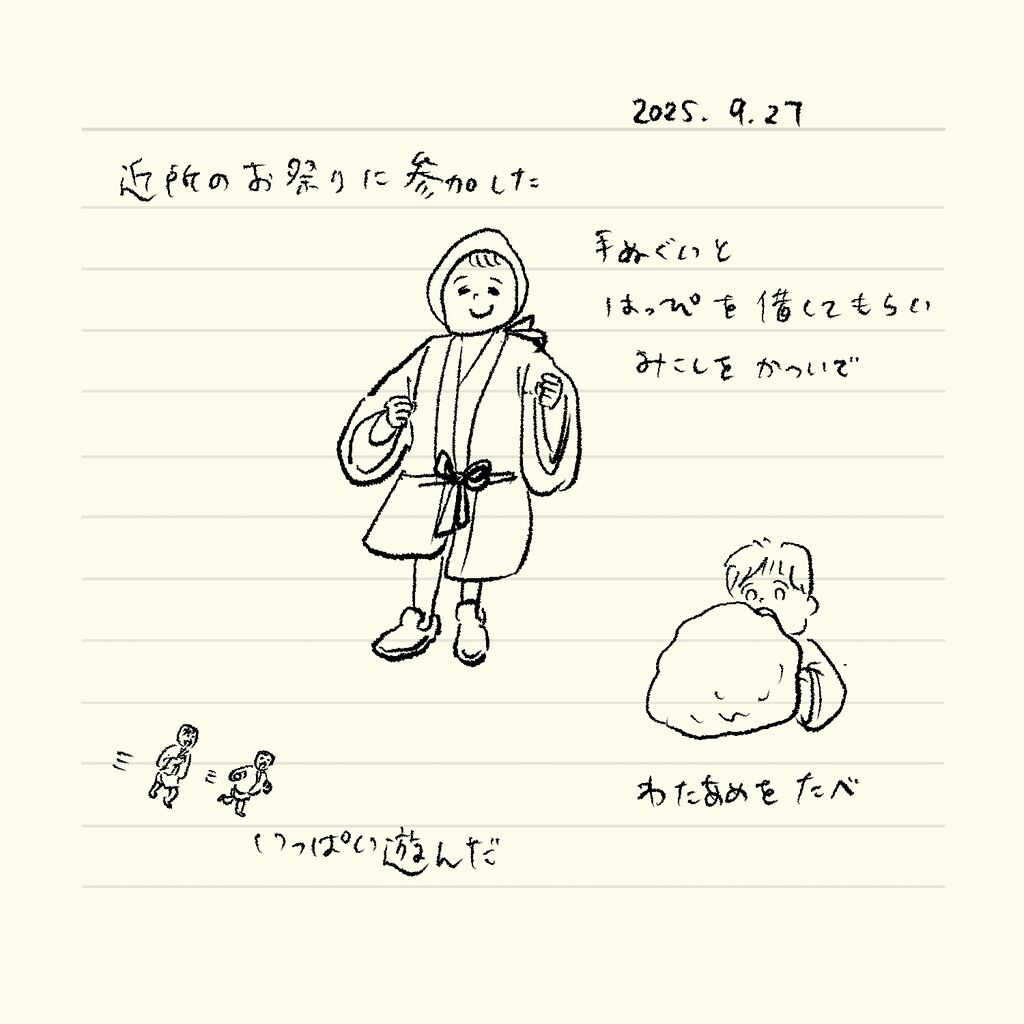 2025. 9. 27
近所のお祭りに参加した
手ぬぐいと
はっぴを借してもらい
みこしをかついで
わたあめをたべ
いっぱい遊んだ